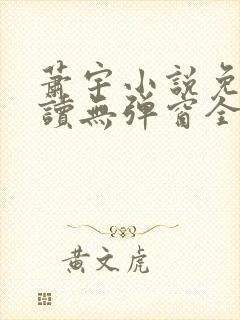 蕭宇小說免
讀無彈窗全
黃文虎